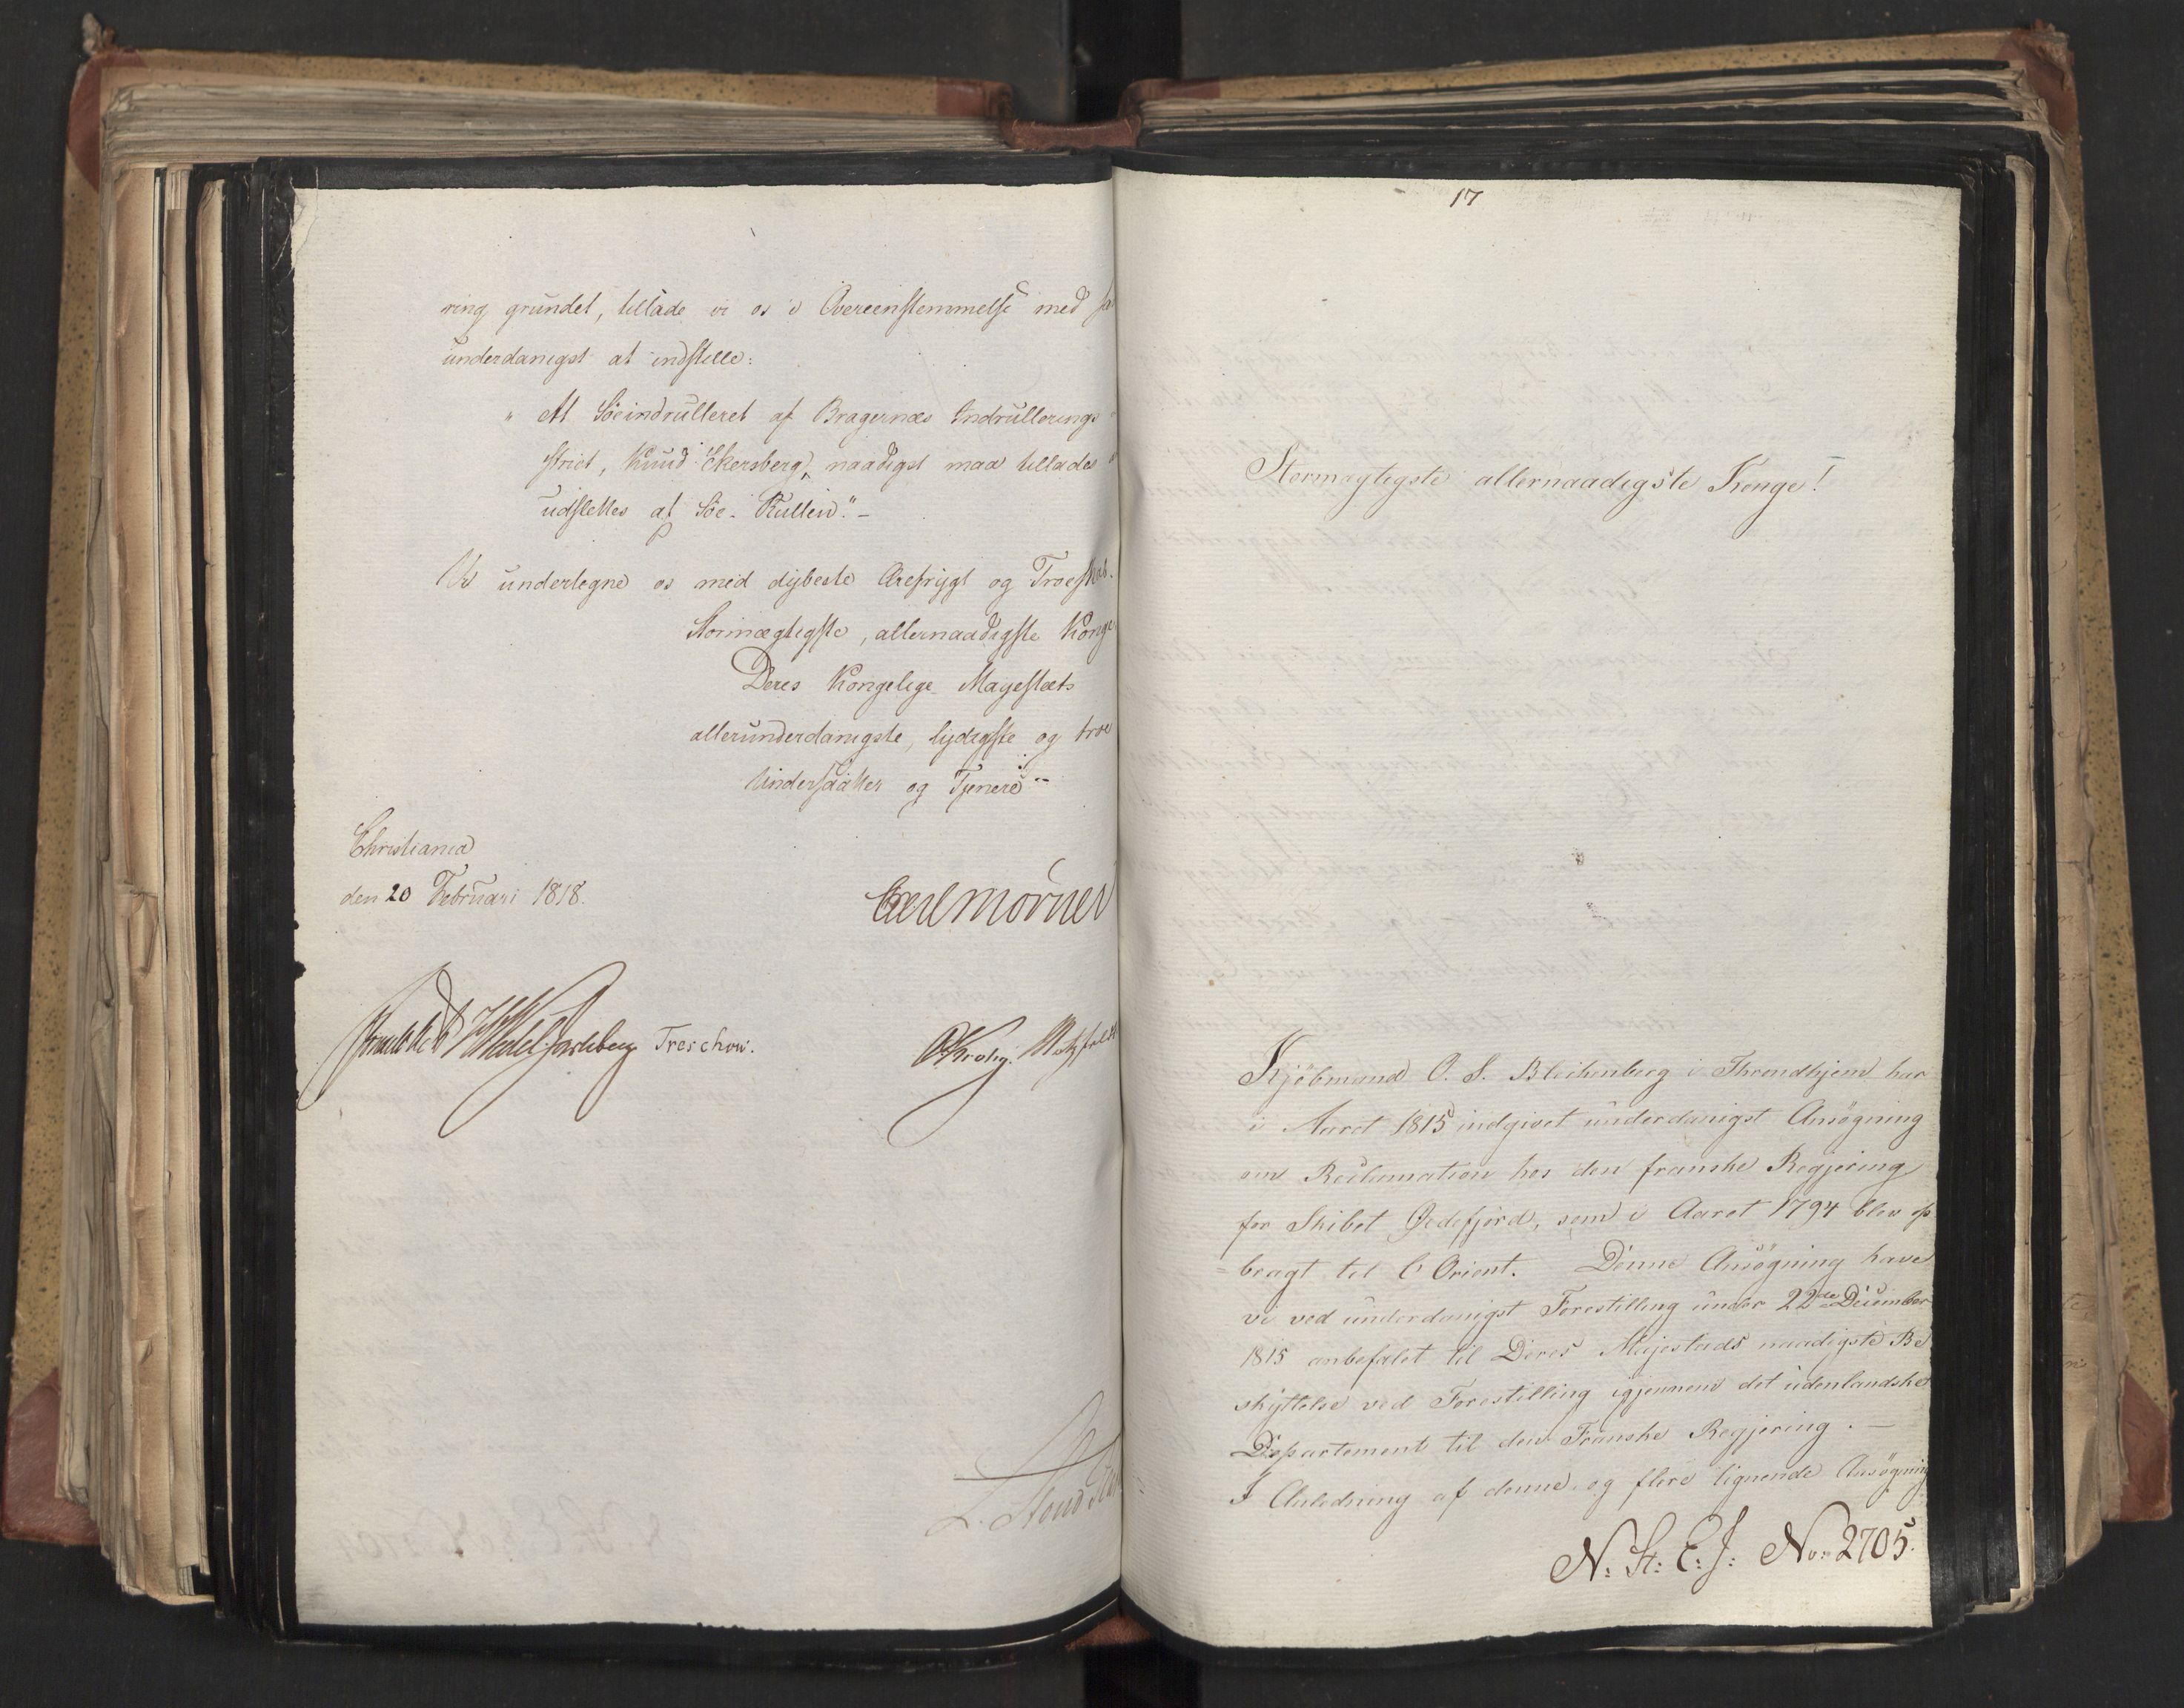 ring grundet, tillade vi os i Overeenstemmelse med
underdanigst at indstille:
" At Søeindrulleret af Bragernæs Indrullerings
strict, Knud Ekersberg, naadigst maa tillades
udslettes af Søe-Rullen." –
Vi undertegne os med dybeste Ærefrygt og Troeskab.
Stormægtigste, allernaadigste Konge
Deres Kongelige Mayestæts
allerunderdanigste, lydigste og troe
Undersaatter og Tjenere
Christiania
den 20 Februari 1818.
Carl Mörner
Wedel Jarlsberg Treschow. Krohg. Motzfeldt
17
Stormægtigste allernaadigste Konge!
Kjöbmand O. S. Blichenberg i Throndhjem har
i Aaret 1815 indgivet underdanigst Ansögning
om Reclamation hos den franske Regjering
for Skibet Ørdefjord, som i Aaret 1794 blev op
= bragt til l'Orient. Denne Ansögning have
vi ved underdanigst Forestilling under 22de December
1815 anbefalet til Deres Majestæds naadigste Be
skyttelse ved Forestilling igjennem det udenlandske
Departement til den Franske Regjering. –
I Anledning af denne og flere lignende Ansøgning
N: St: E: J: No: 2705.